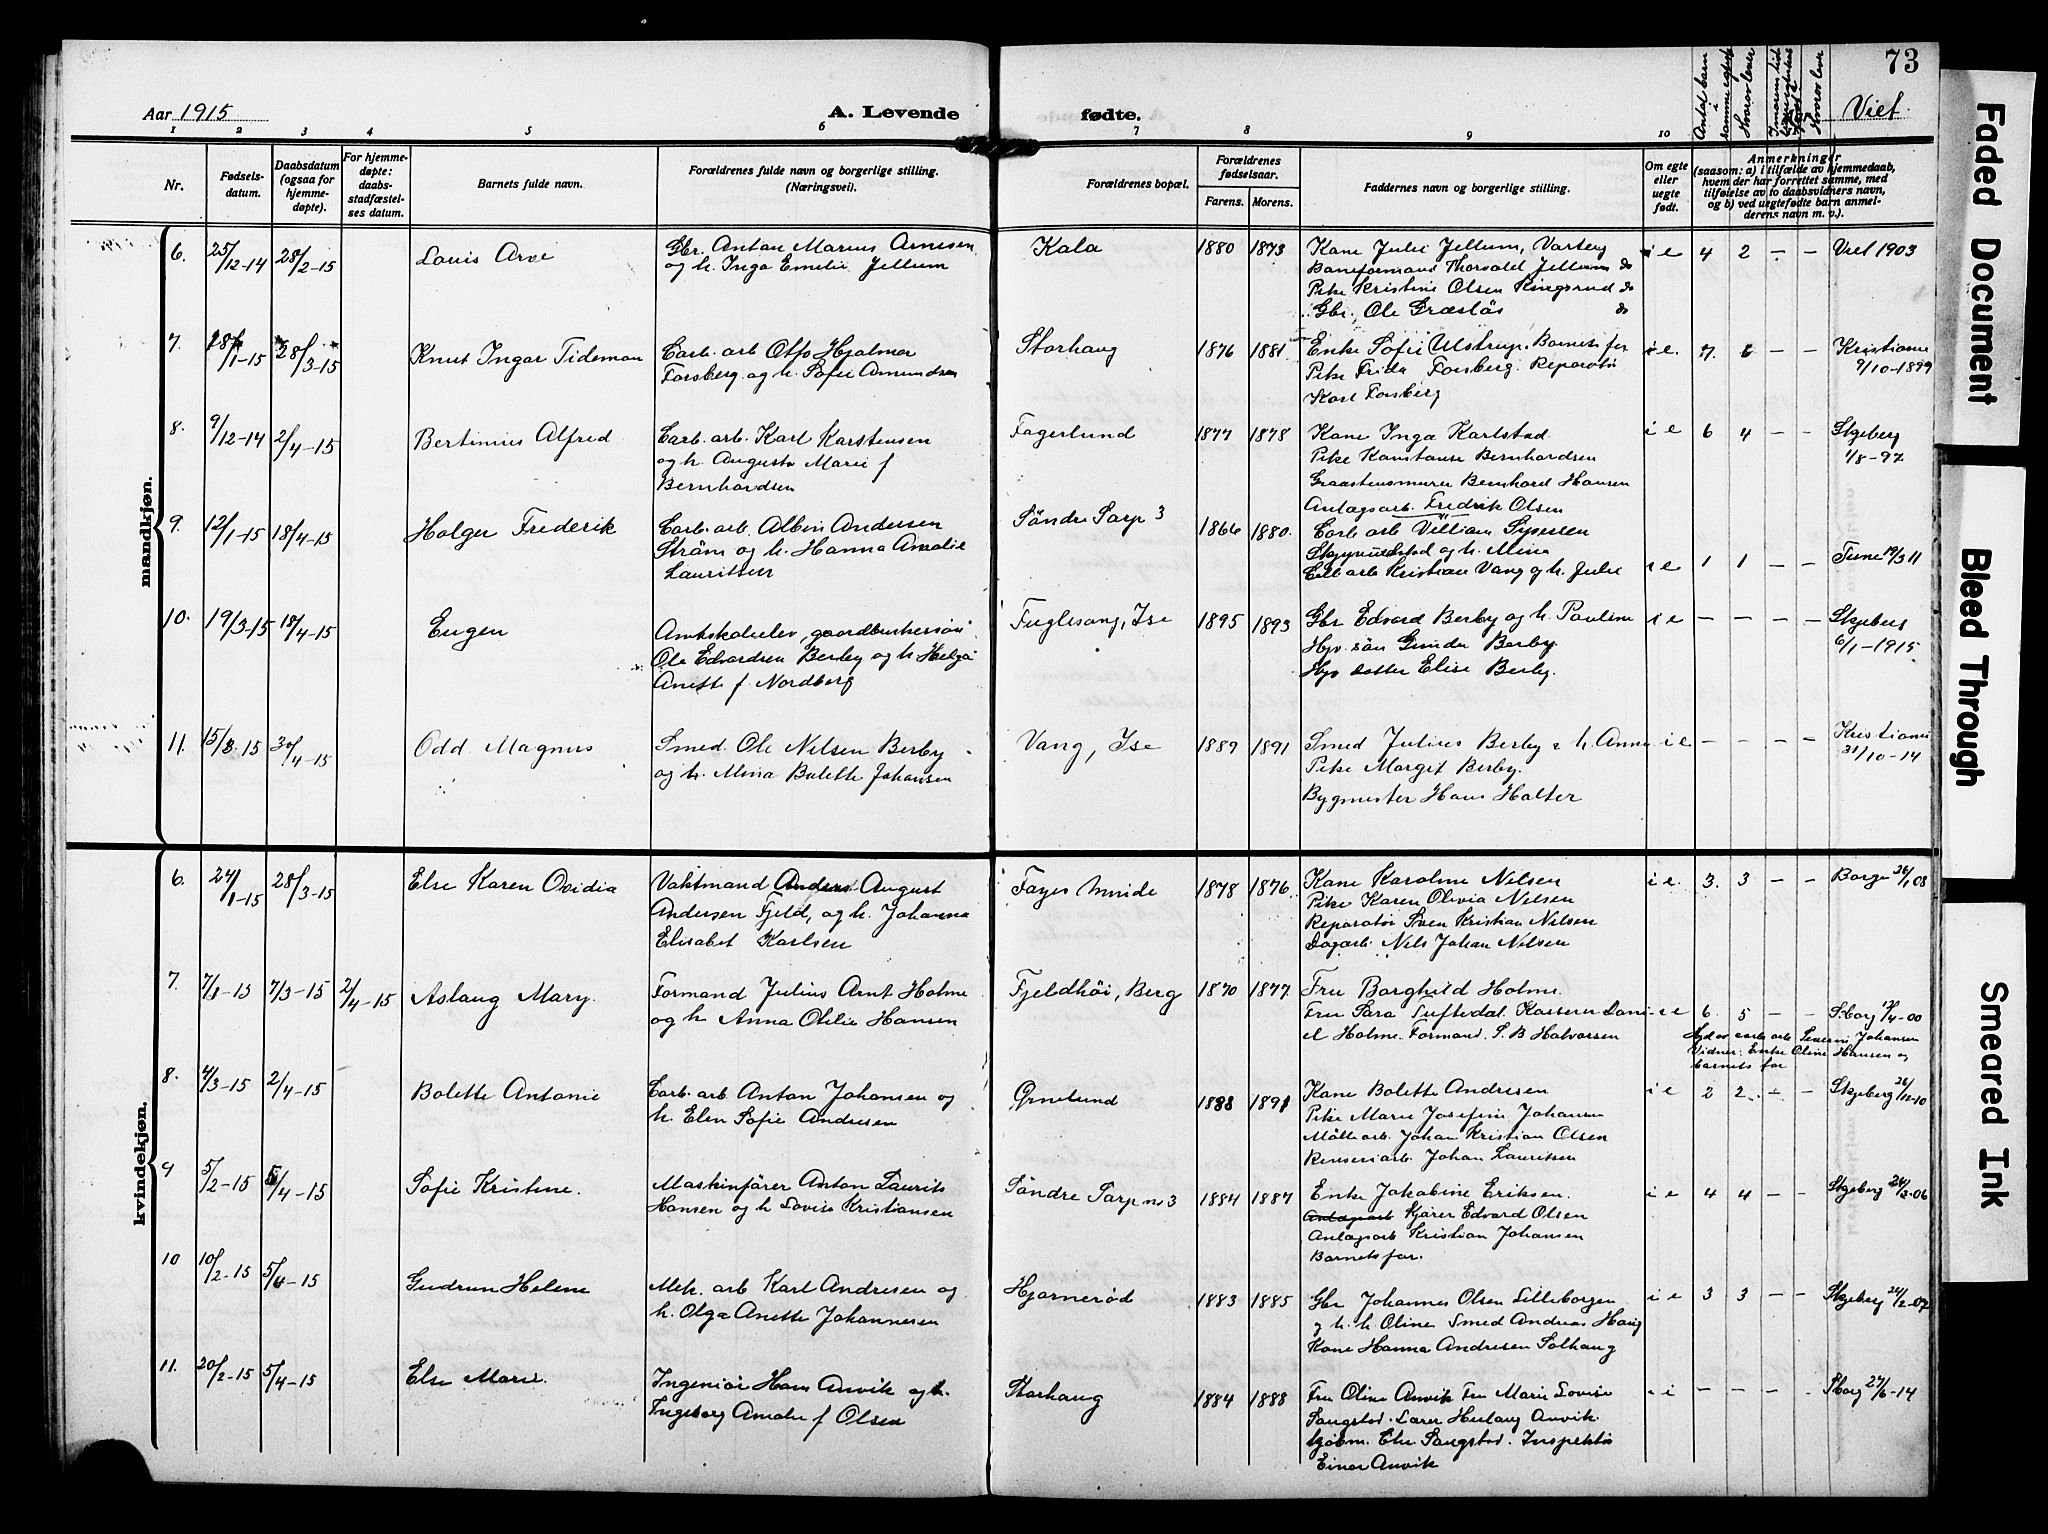 73
Aar 1915
A. Levende
fødte.
Antal barn i samme egtesk.
Hvorav lever
Hvorav lever
Viet.
1 2 3 4 5 6 7 8 9 10
Nr.
Fødsels-
datum.
Daabsdatum
(ogsaa for
hjemme-
døpte).
For hjemme-
døpte:
daabs-
stadfæstel-
ses datum.
Barnets fulde navn.
Forældrenes fulde navn og borgerlige stilling.
(Næringsvei).
Forældrenes bopæl.
Forældrenes
fødselsaar.
Farens. Morens.
Faddernes navn og borgerlige stilling.
Om egte
eller
uegte
født.
Anmerkninger
(saasom: a) i tilfælde av hjemmedaab,
hvem der har forrettet samme, med
tilføielse av to daabsvidners navn,
og b) ved uegtefødte barn anmel-
derens navn m. v.).
mandkjøn.
6. 25/12-14 28/2-15 Louis Arve
Gbr. Anton Marius Arnesen
og h. Inga Emelie Jellum
Kala 1880 1873
Kone Julie Jellum, Varteig
Baneformand Thorvald Jellum do
Pike Kristine Olsen Kingsrud do
Gbr. Ole Græsløs do
i e 4 2 - - Viet 1903
7. 28/1-15 28/3-15 Knut Ingar Tideman
Carb. arb Otto Hjalmar
Forsberg og h. Sofie Amundsen
Storhaug 1876 1881
Enke Sofie Ulstrup. Barnets far
Pike Frida Forsberg. Reparatør
Karl Forsberg
i e. 7. 6 - - Kristiania
9/10-1899
8. 9/12-14 2/4-15 Bertinius Alfred
Carb. arb. Karl Karstensen
og h. Augusta Marie f
Bernhardsen
Fagerlund 1877 1878
Kone Inga Karlstad
Pike Konstanse Bernhardsen
Graastensmurer Bernhard Hansen
Anlægsarb. Fredrik Olsen
i e 6 4 - - Skjeberg
1/8-97
9. 12/1-15 18/4-15 Holger Frederik
Carb. arb. Albin Andersen
Strøm og h. Hanna Amalie
Lauritsen
Søndre Sarp 3 1866 1880.
Carb arb Villiam Syversen
og h. Mina
Cell arb Kristian Vang og h. Julie
i e 1 1 - - Tune 19/3 11
10. 19/3-15 18/4-15 Eugen
Amtskoleelev, gaardbrukersøn
Ole Edvardsen Berby og h Helga
Anette f. Nordberg
Fuglesang, Ise 1895 1893
Gbr Edvard Berby og h. Pauline
Hjv. søn Gunder Berby.
Hjv datter Elise Berby.
i e - - - - Skjeberg
6/1-1915
11. 15/3-15 30/4-15 Odd Magnus
Smed. Ole Nilsen Berby
og h. Mina Bolette Johansen
Vang, Ise 1889 1891
Smed Julius Berby & h. Anna
Pike Margit Berby.
Bygmester Hans Holter
i e - - - - Kristiania
31/10-14
kvindekjøn.
6. 24/1-15 28/3-15 Else Karen Ovidia
Vaktmand Anders August
Andersen Fjeld, og h. Johanna
Elisabet Karlsen
Fayes Minde 1878 1876.
Kone Karoline Nilsen
Pike Karen Olivia Nilsen
Reparatør Sven Kristian Nilsen
Dagarb. Nils Johan Nilsen
i e. 3. 3 - - Borge 26/1 08
7. 7/1-15 7/3-15 2/4-15 Aslaug Mary.
Formand Julius Arnt Holme
og h Anna Otelie Hansen
Fjeldhøi, Berg 1870 1877
Fru Borghild Holme.
Fru Sara Tuftedal. Kasserer Dani-
el Holme. Formand. S. B Halvorsen
i e 6. 5 - - S.borg 17/4-00
Hjd av carb arb Severin Johansen
Vidner: Enke Oline Hansen og
barnets far
8. 4/3-15 2/4-15 Bolette Antonie
Carb. arb. Anton Johansen og
h. Elen Sofie Andresen
Grnelund 1888 1891
Kone Bolette Andresen
Pike Marie Josefine Johansen
Møllearb. Johan Kristian Olsen
Renseriarb. Johan Lauritsen
i e 2 2 - - Skjeberg 26/12-10
9 5/2-15 5/4-15 Sofie Kristine.
Maskinfører Anton Laurits
Hansen og h Lovise Kristiansen
Søndre Sarp no 3 1884 1887
Enke Jakobine Eriksen.
Anlægsarb Kjører Edvard Olsen
Anlægsarb Kristian Johansen
Barnets far.
i e 4 4 - - Skjeberg 24/2-06
10 10/2-15 5/4-15 Gudrun Helene
Mek. arb Karl Andresen og
h. Olga Anette Johannesen
Hjørnerød 1883 1885
Gbr Johannes Olsen Lilleborgen
og h. h. Oline Smed Andreas Haug
Kone Hanna Andresen Solhaug
i e 3 3 - - Skjeberg 24/2-07
11. 20/2-15 5/4-15 Else Marie.
Ingeniør Hans Anvik og h.
Ingeborg Amalie f Olsen
Storhaug 1884 1888
Fru Oline Anvik Fru Marie Lovise
Sangstad. Lærer Herlaug Anvik.
Kjøbm. Elr. Sangstad. Inspektør
Einar Anvik
i - - - - S.borg 27/6-14
Faded Document
Bleed Through
Smeared Ink